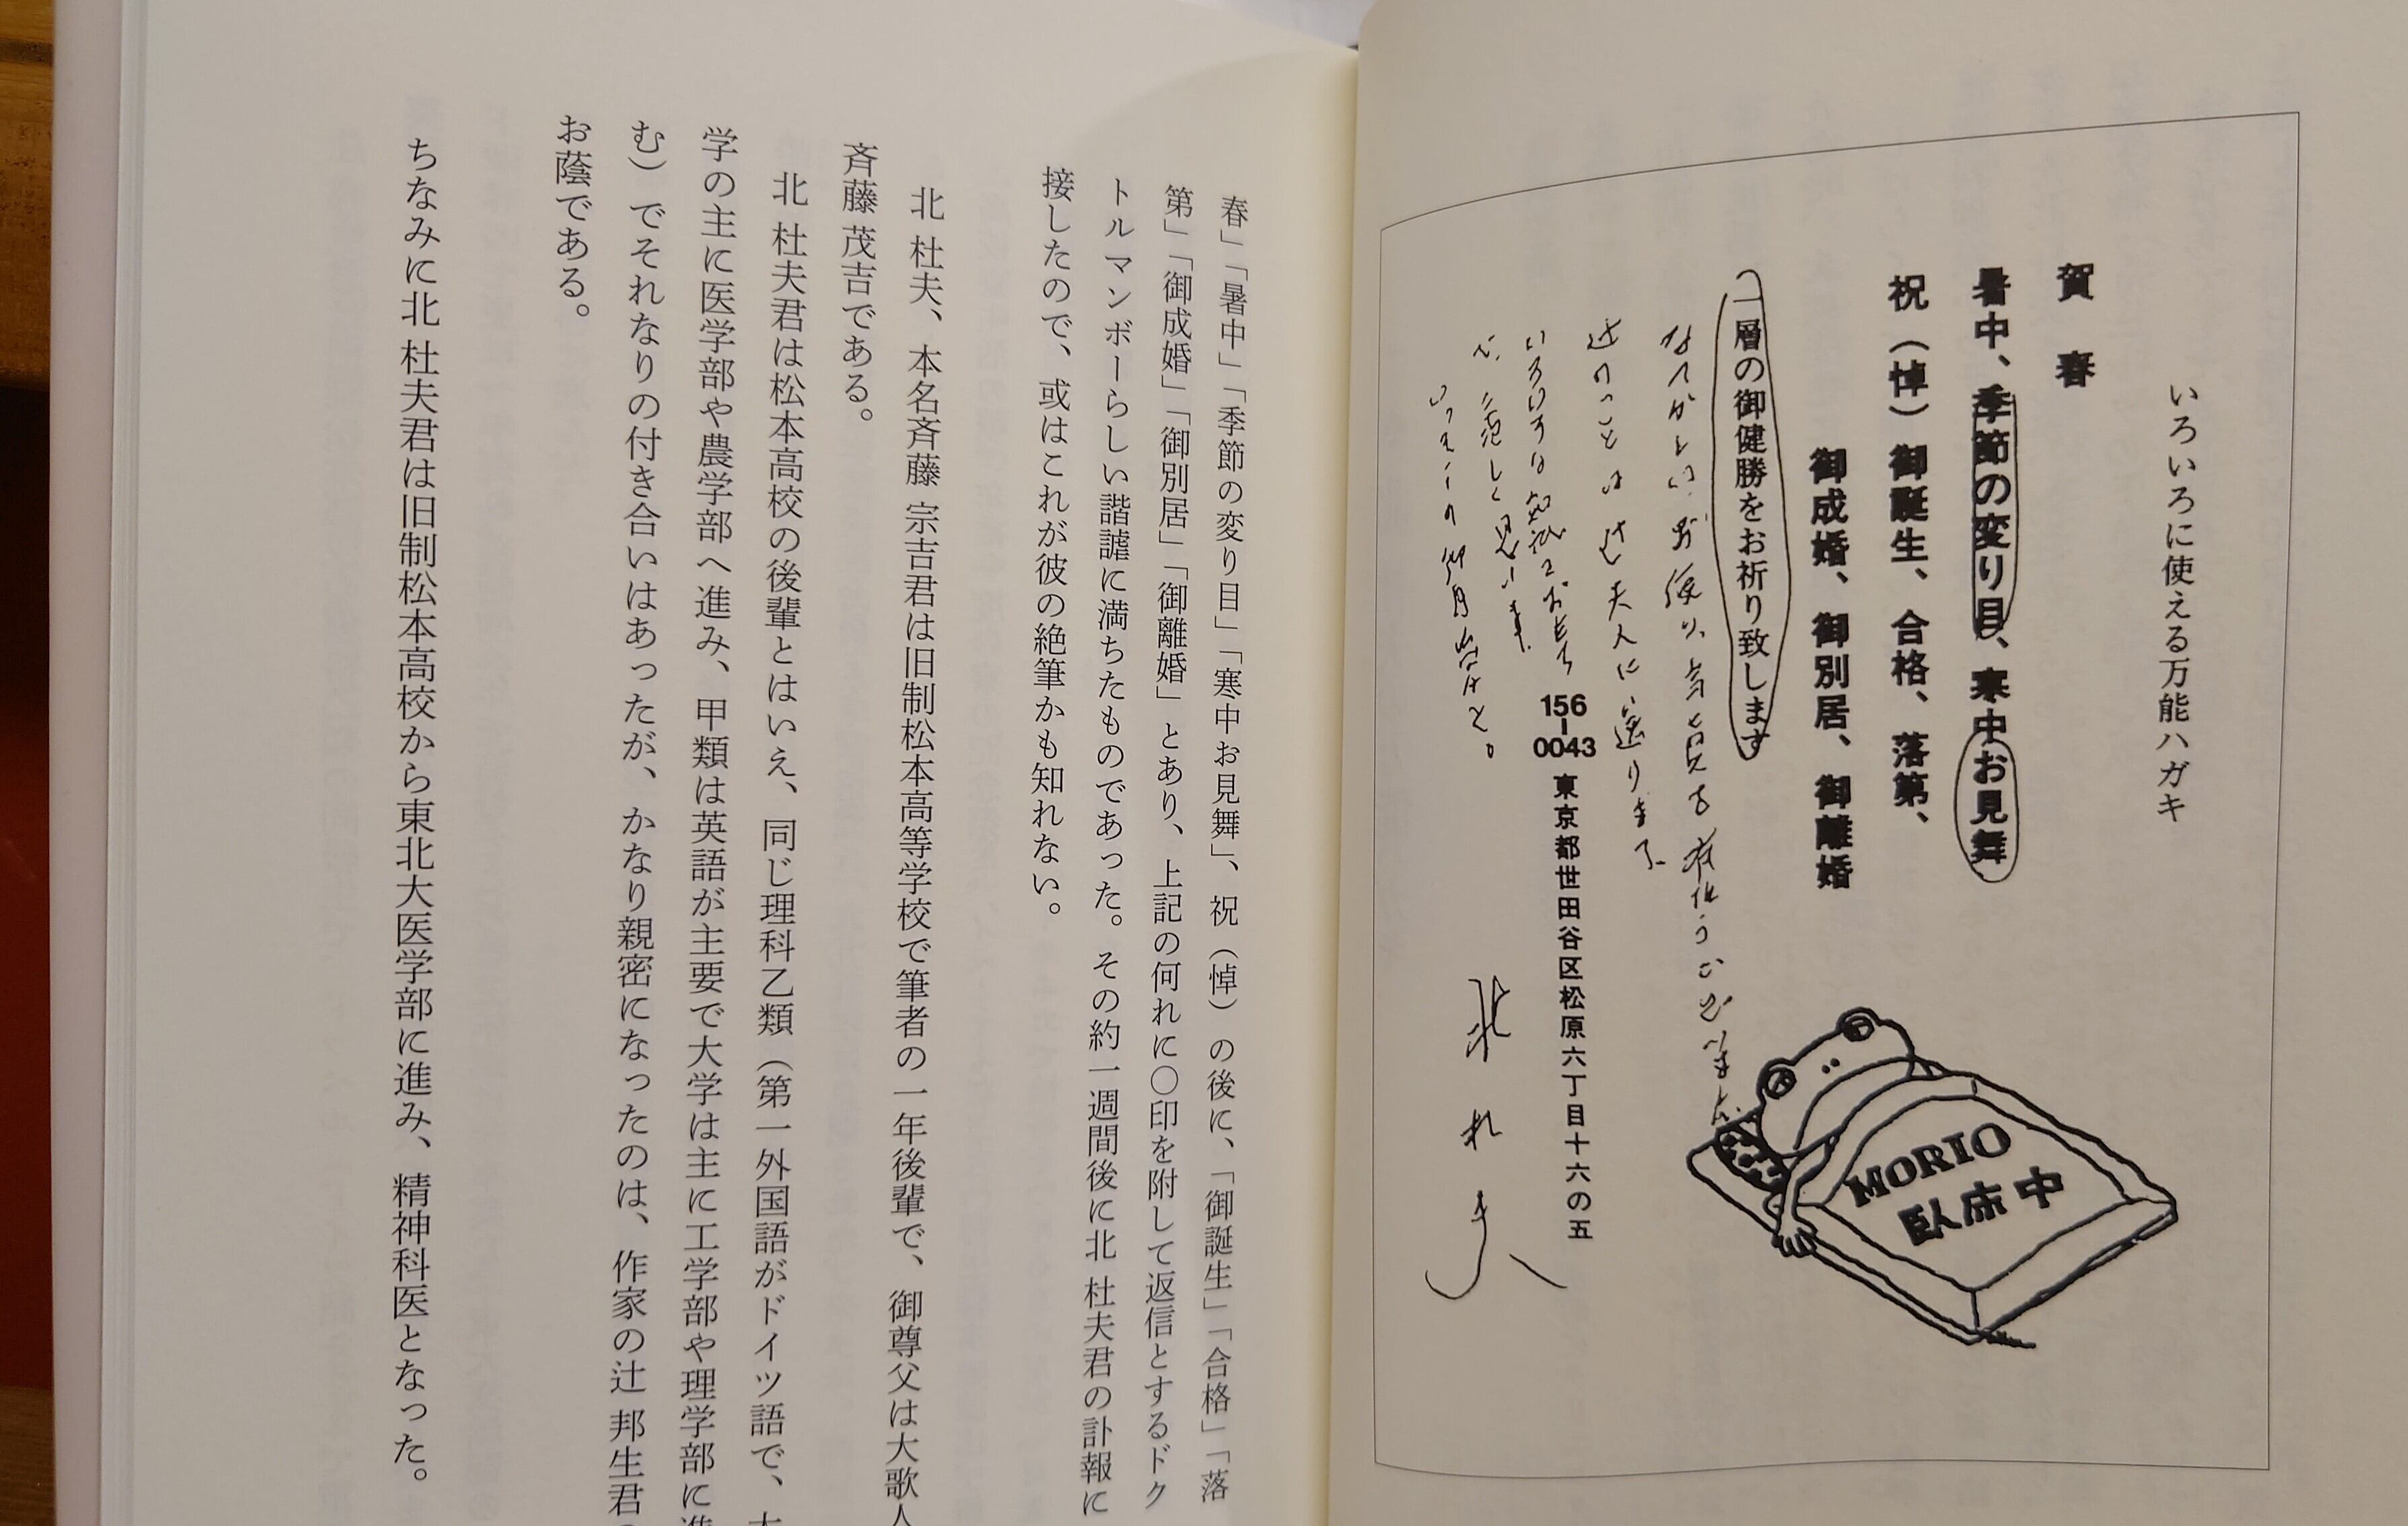 いろいろに使える万能ハガキ
賀春
暑中、季節の変り目、寒中お見舞
祝（悼）御誕生、合格、落第、
御成婚、御別居、御離婚
一層の御健勝をお祈り致します
なつかしいお便り、
近
いろいろな
156-0043 東京都世田谷区松原六丁目十六の五
北杜夫
MORIO
臥床中
春」「暑中」「季節の変り目」「寒中お見舞」、祝（悼）の後に、「御誕生」「合格」「落
第」「御成婚」「御別居」「御離婚」とあり、上記の何れに〇印を附して返信とするドク
トルマンボーらしい諧謔に満ちたものであった。その約一週間後に北 杜夫君の訃報に
接したので、或はこれが彼の絶筆かも知れない。
北 杜夫、本名斉藤 宗吉君は旧制松本高等学校で筆者の一年後輩で、御尊父は大歌人
斉藤 茂吉である。
北 杜夫君は松本高校の後輩とはいえ、同じ理科乙類（第一外国語がドイツ語で、大
学の主に医学部や農学部へ進み、甲類は英語が主要で大学は主に工学部や理学部に進
む）でそれなりの付き合いはあったが、かなり親密になったのは、作家の辻 邦生君の
お蔭である。
ちなみに北 杜夫君は旧制松本高校から東北大医学部に進み、精神科医となった。